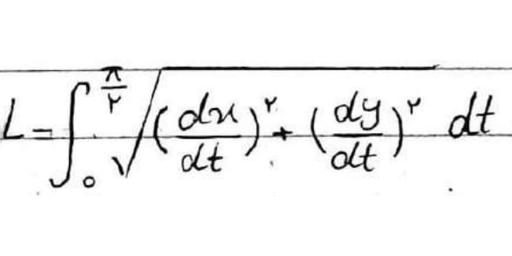 L = ∫₀^(π/۲) √((dx/dt)^۲ + (dy/dt)^۲) dt